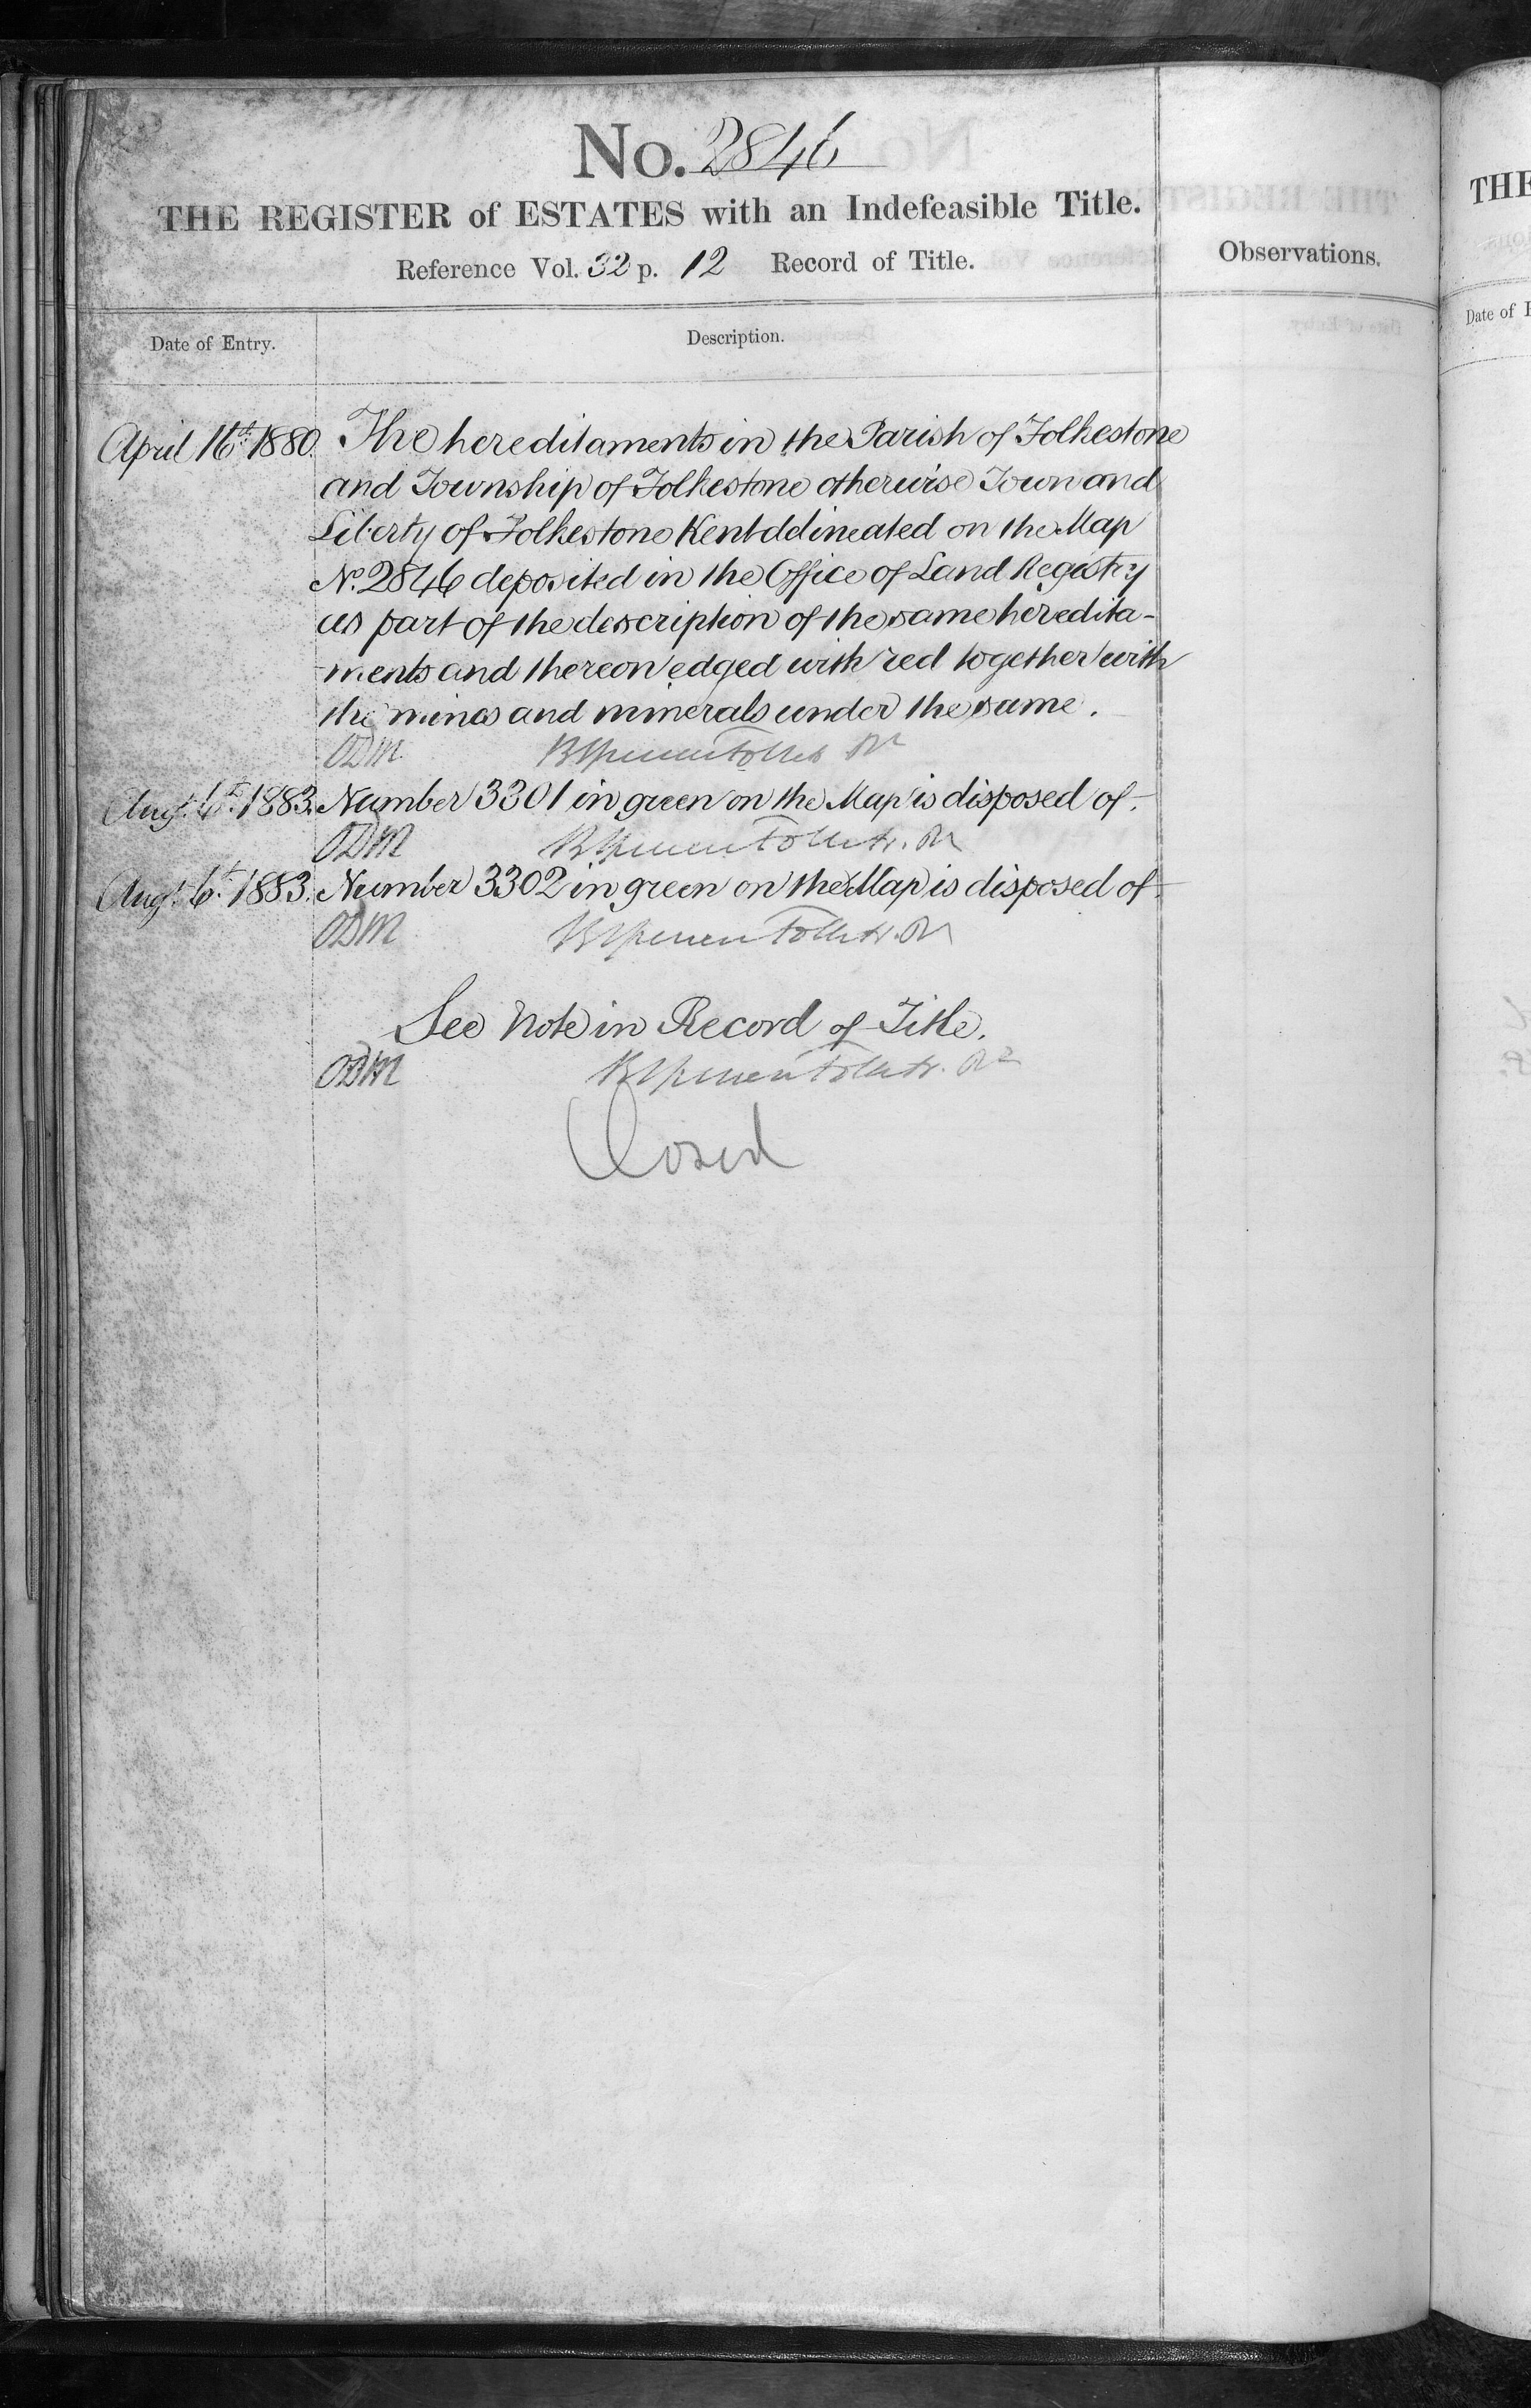 No. 2846
THE REGISTER of ESTATES with an Indefeasible Title.
Reference Vol. 32 p. 12 Record of Title.
Observations.
Date of Entry.
Description.
April 16th 1880. The hereditaments in the Parish of Folkestone
and Township of Folkestone otherwise Town and
Liberty of Folkestone Kent delineated on the Map
No. 2846 deposited in the Office of Land Registry
as part of the description of the same heredita-
ments and thereon edged with red together with
the mines and minerals under the same.
ODM
Augt. 6th 1883. Number 3301 in green on the Map is disposed of.
ODM
Augt. 6th 1883. Number 3302 in green on the Map is disposed of.
ODM
See Note in Record of Title.
ODM
Closed
THE
Date of